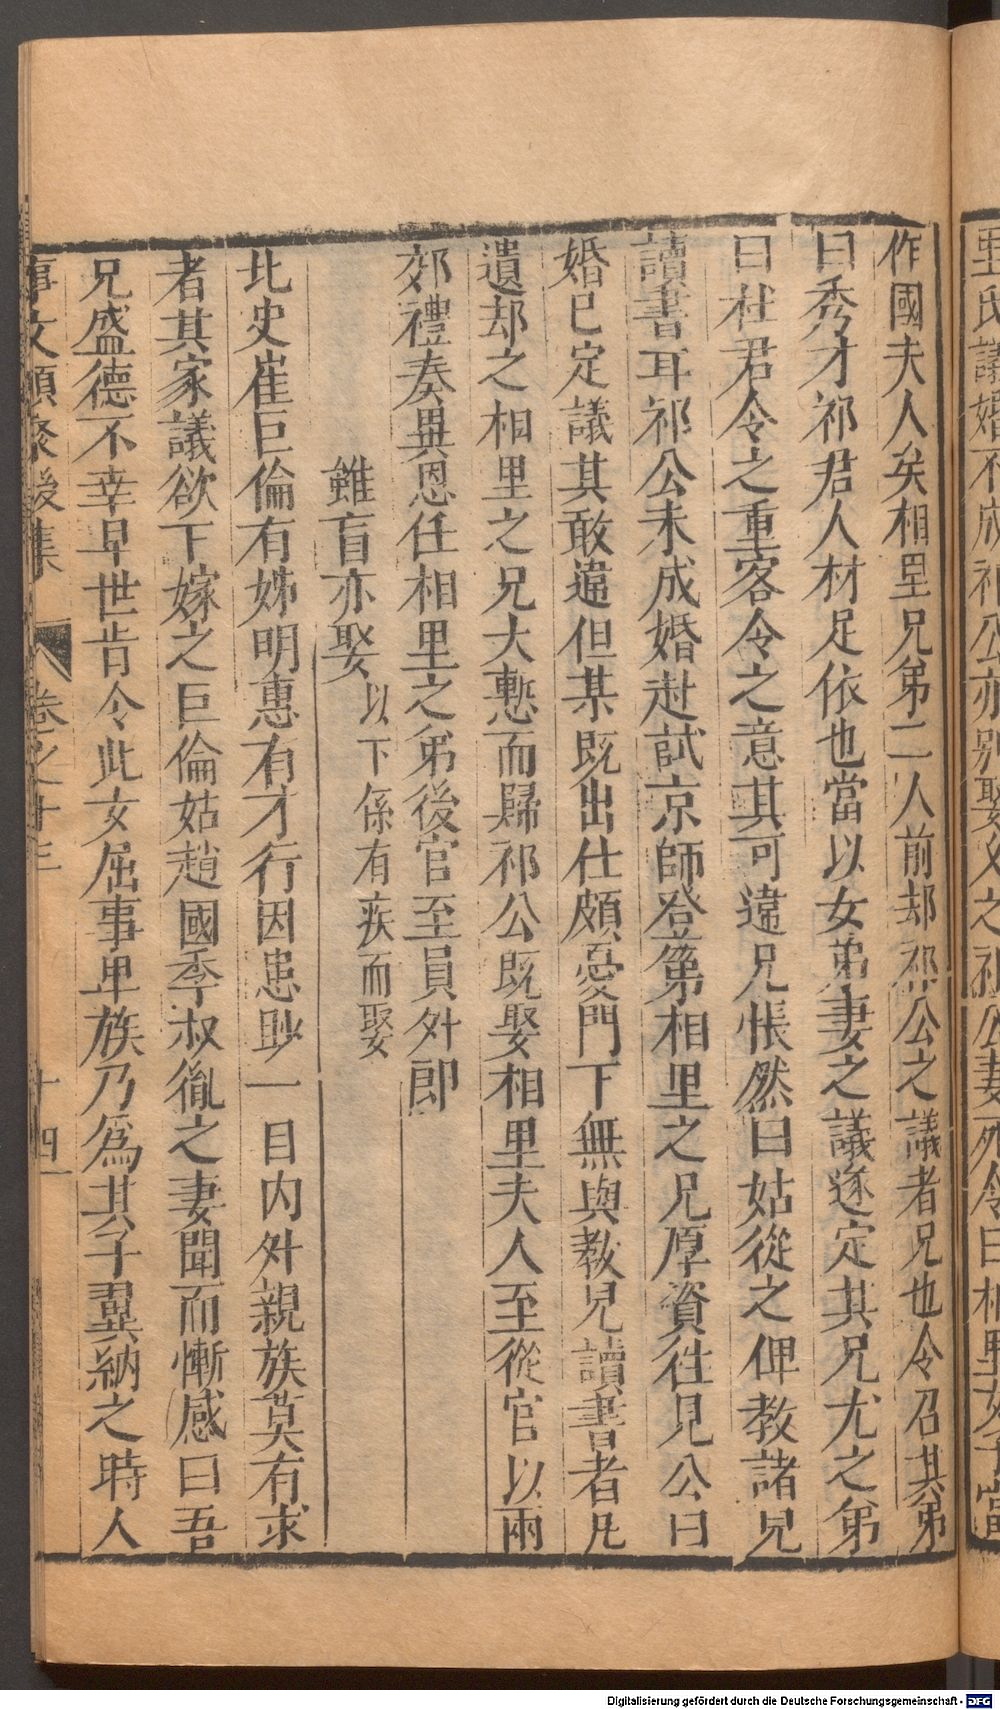 里氏議婚不成祁公亦別娶久之祁公妻死令曰相里女子當
作國夫人矣相里兄弟二人前却祁公之議者兄也令召其弟
曰秀才祁君人材足依也當以女弟妻之議遂定其兄尤之弟
曰杜君令之重客令之意其可違兄悵然曰姑從之俾教諸兒
讀書耳祁公未成婚赴試京師登第相里之兄厚資往見公曰
婚已定議其敢違但某既出仕頗憂門下無與教兒讀書者凡
遺却之相里之兄大慙而歸祁公既娶相里夫人至從官以兩
郊禮奏異恩任相里之弟後官至員外郎
雖盲亦娶以下係有疾而娶
北史崔巨倫有姊明惠有才行因患眇一目内外親族莫有求
者其家議欲下嫁之巨倫姑趙國季叔胤之妻聞而慚感曰吾
兄盛德不幸早世肯令此女屈事卑族乃爲其子翼納之時人
事文類聚後集 卷之十三 十四
Digitalisierung gefördert durch die Deutsche Forschungsgemeinschaft - DFG